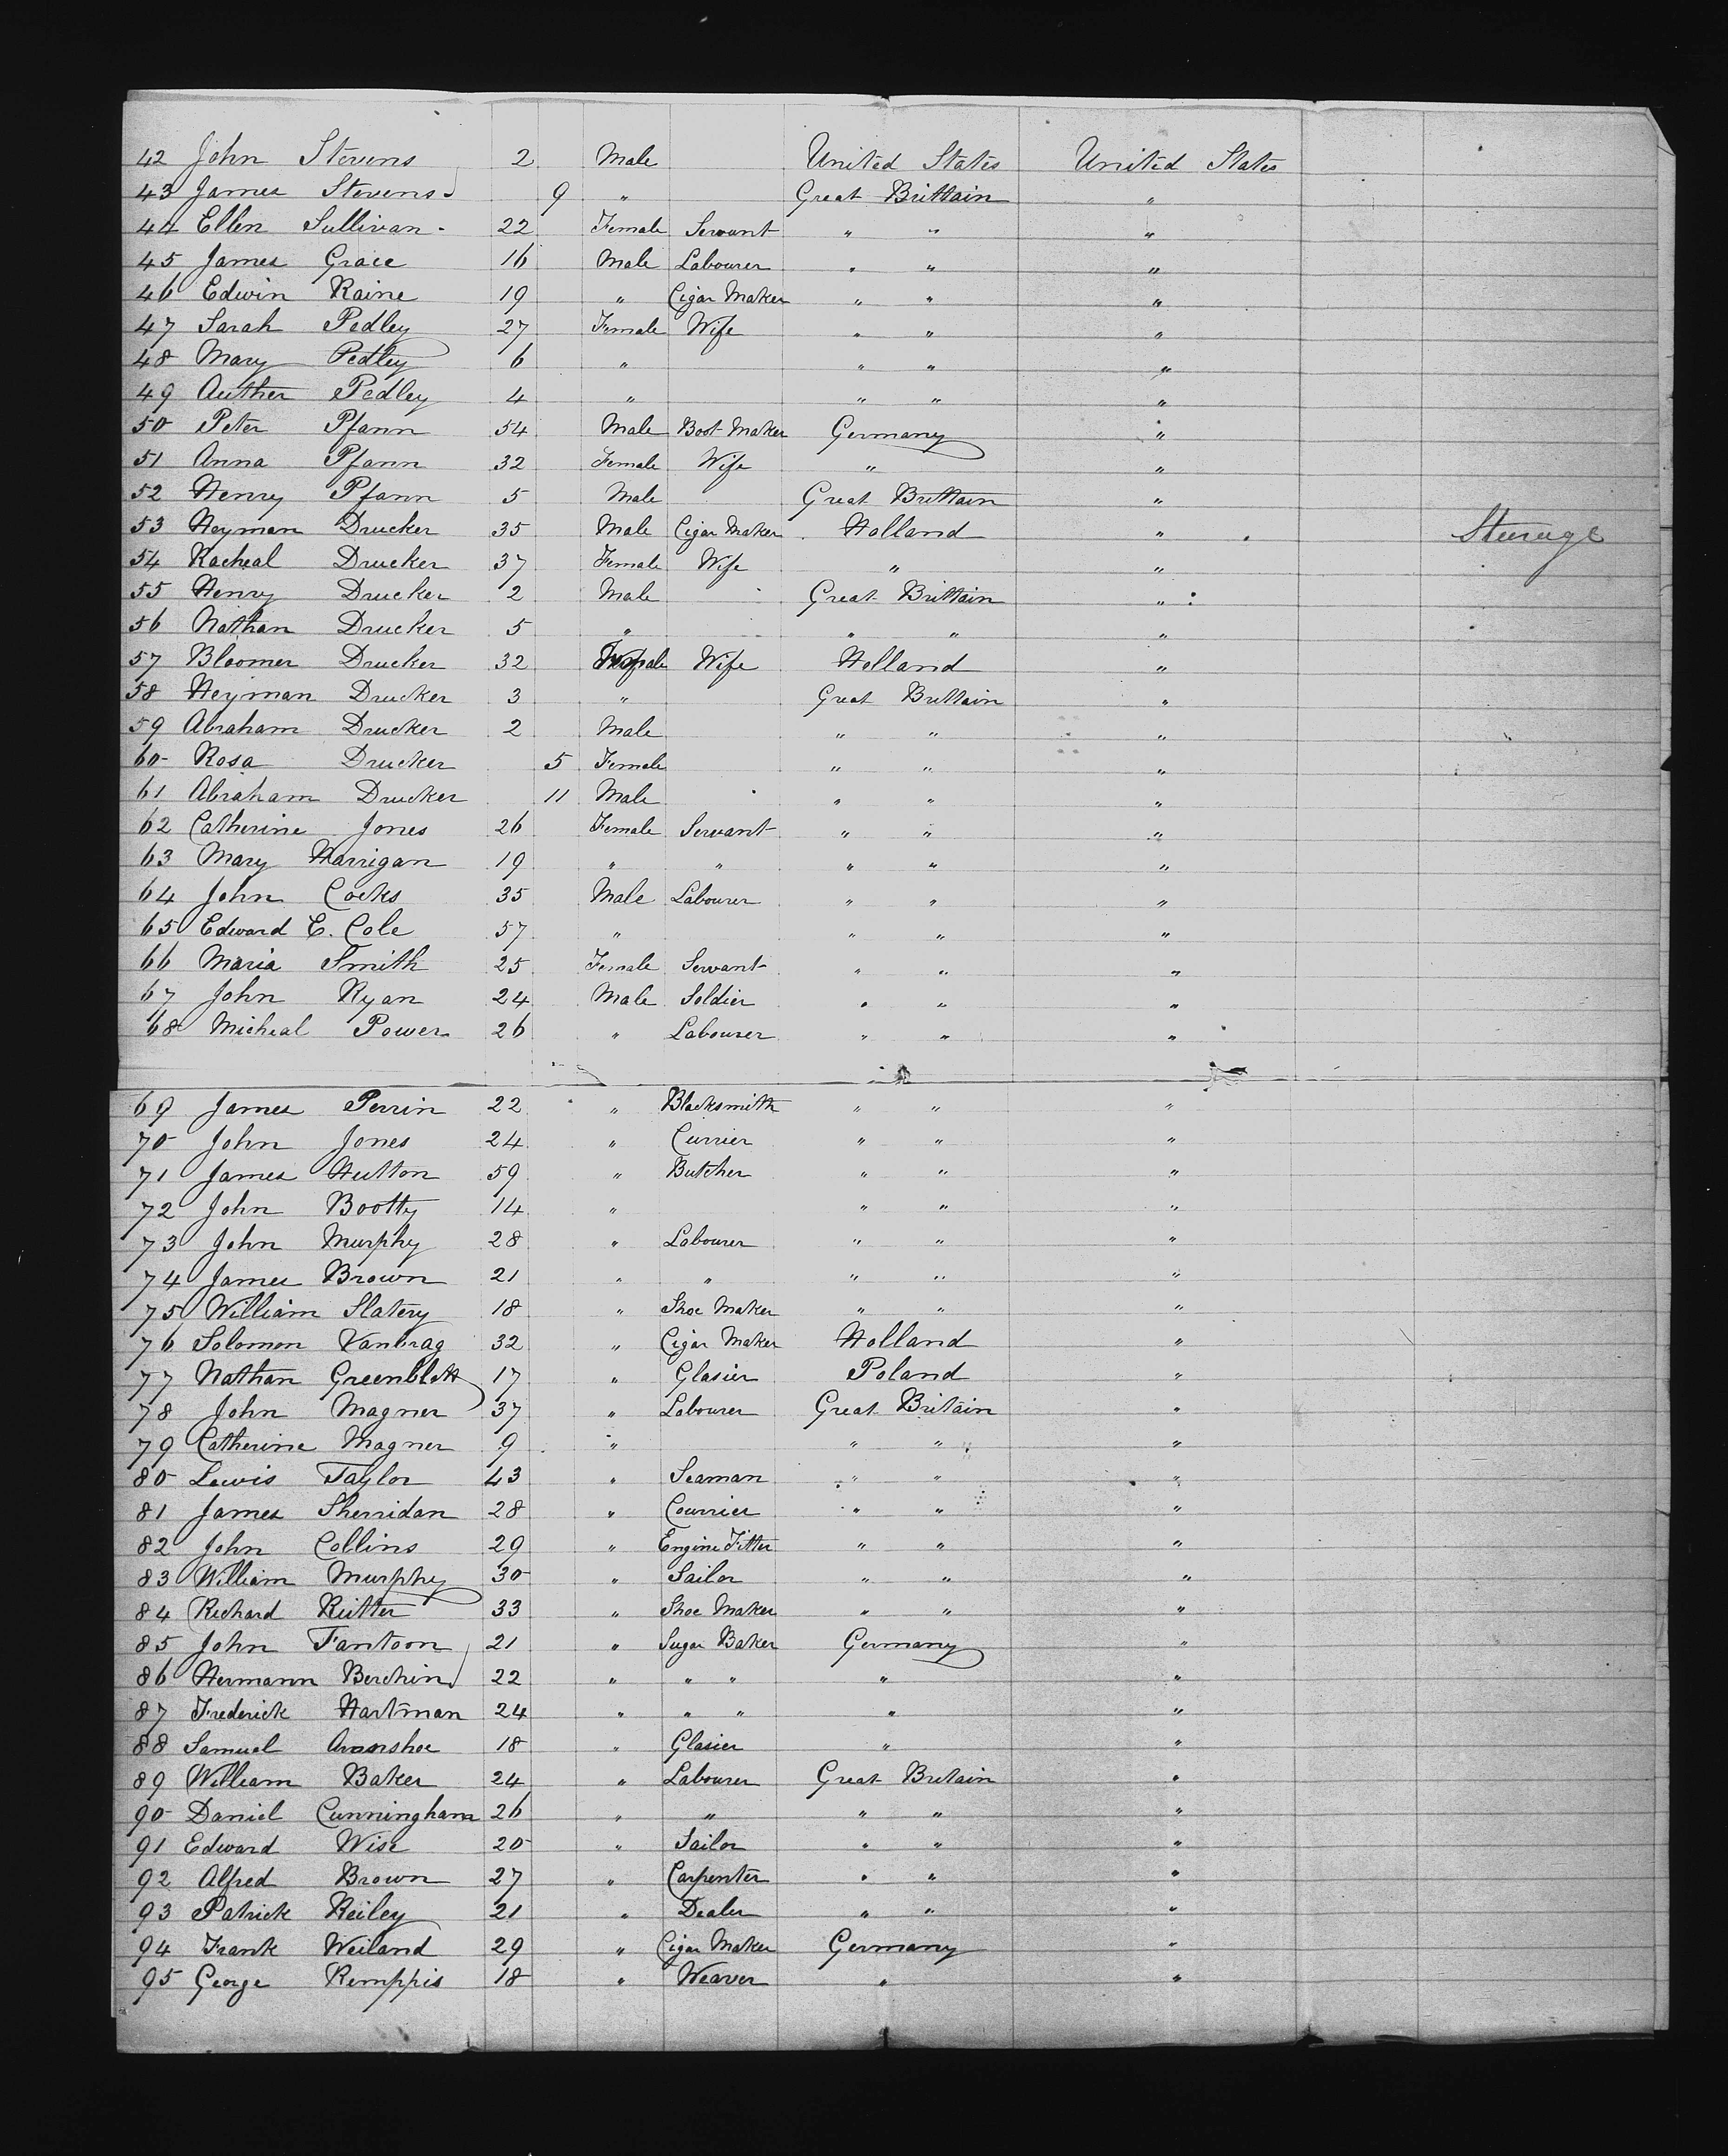 42 John Stevens 2 Male United States United States
43 James Stevens 9 " Great Brittain "
44 Ellen Sullivan 22 Female Servant " " "
45 James Grace 16 Male Labourer " " "
46 Edwin Raine 19 " Cigar Maker " " "
47 Sarah Pedley 27 Female Wife " " "
48 Mary Pedley 6 " " " "
49 Auther Pedley 4 " " " "
50 Peter Pfann 54 Male Boot Maker Germany "
51 Anna Pfann 32 Female Wife " "
52 Henry Pfann 5 Male Great Brittain "
53 Heyman Drucker 35 Male Cigar Maker Holland " Steerage
54 Racheal Drucker 37 Female Wife " "
55 Henry Drucker 2 Male Great Brittain "
56 Nathan Drucker 5 " " " "
57 Bloomer Drucker 32 Female Wife Holland "
58 Heyman Drucker 3 " Great Brittain "
59 Abraham Drucker 2 Male " " "
60 Rosa Drucker 5 Female " " "
61 Abraham Drucker 11 Male " " "
62 Catherine Jones 26 Female Servant " " "
63 Mary Harrigan 19 " " " " "
64 John Cocks 35 Male Labourer " " "
65 Edward C. Cole 57 " " " "
66 Maria Smith 25 Female Servant " " "
67 John Ryan 24 Male Soldier " " "
68 Micheal Power 26 " Labourer " " "
69 James Perrin 22 " Blacksmith " " "
70 John Jones 24 " Currier " " "
71 James Hutton 59 " Butcher " " "
72 John Bootty 14 " " " "
73 John Murphy 28 " Labourer " " "
74 James Brown 21 " " " " "
75 William Slatery 18 " Shoe Maker " " "
76 Solomon Vanbrag 32 " Cigar Maker Holland "
77 Nathan Greenblett 17 " Glasier Poland "
78 John Magner 37 " Labourer Great Britain "
79 Catherine Magner 9 " " " "
80 Lewis Taylor 43 " Seaman " " "
81 James Sherridan 28 " Courrier " " "
82 John Collins 29 " Engine Fitter " " "
83 William Murphy 30 " Sailor " " "
84 Richard Rutter 33 " Shoe Maker " " "
85 John Fantoon 21 " Sugar Baker Germany "
86 Hermann Berchin 22 " " " " "
87 Frederick Hartman 24 " " " " "
88 Samuel 18 " Glasier " "
89 William Baker 24 " Labourer Great Britain "
90 Daniel Cunningham 26 " " " " "
91 Edward Wise 20 " Sailor " " "
92 Alfred Brown 27 " Carpenter " " "
93 Patrick Reiley 21 " Dealer " " "
94 Frank Weiland 29 " Cigar Maker Germany "
95 George Remppis 18 " Weaver " "